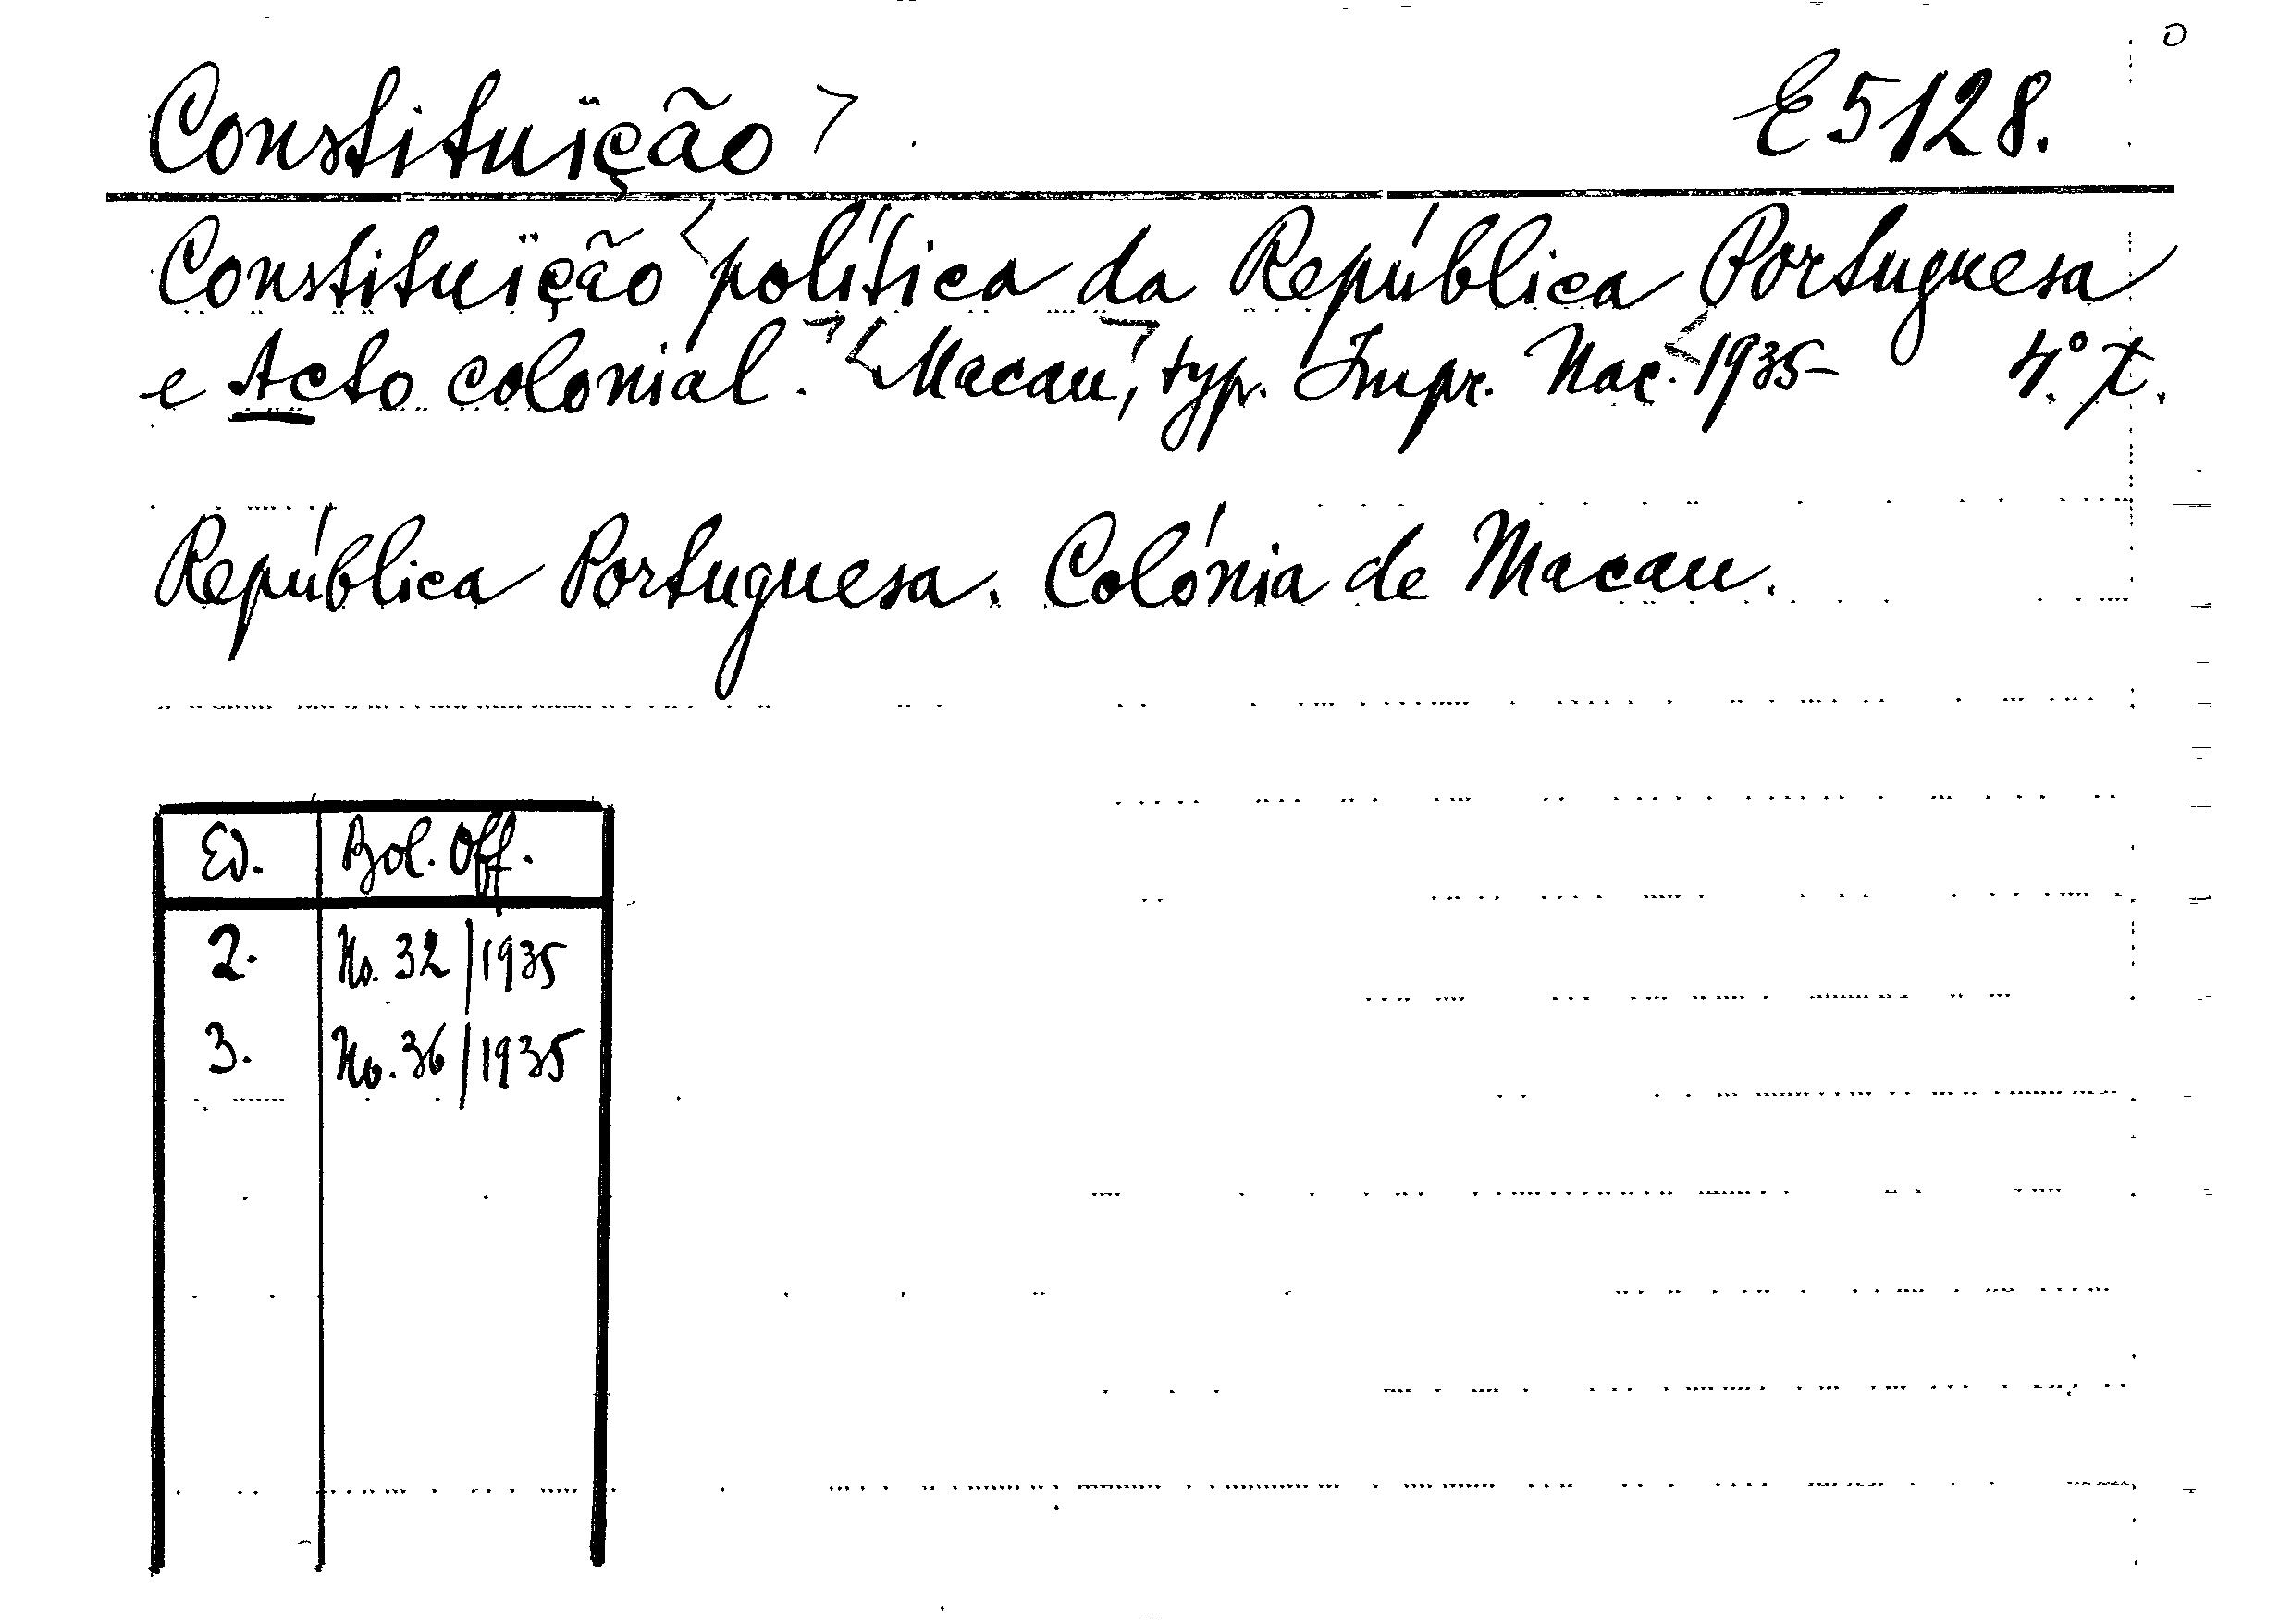 Constituïção E 5128.
Constituïção política da República Portuguesa
e Acto colonial. Macau, typ. Impr. Nac. 1935- 4.º
República Portuguesa. Colónia de Macau.
Ed. Bol. Off.
2. No. 32/1935
3. No. 36/1935